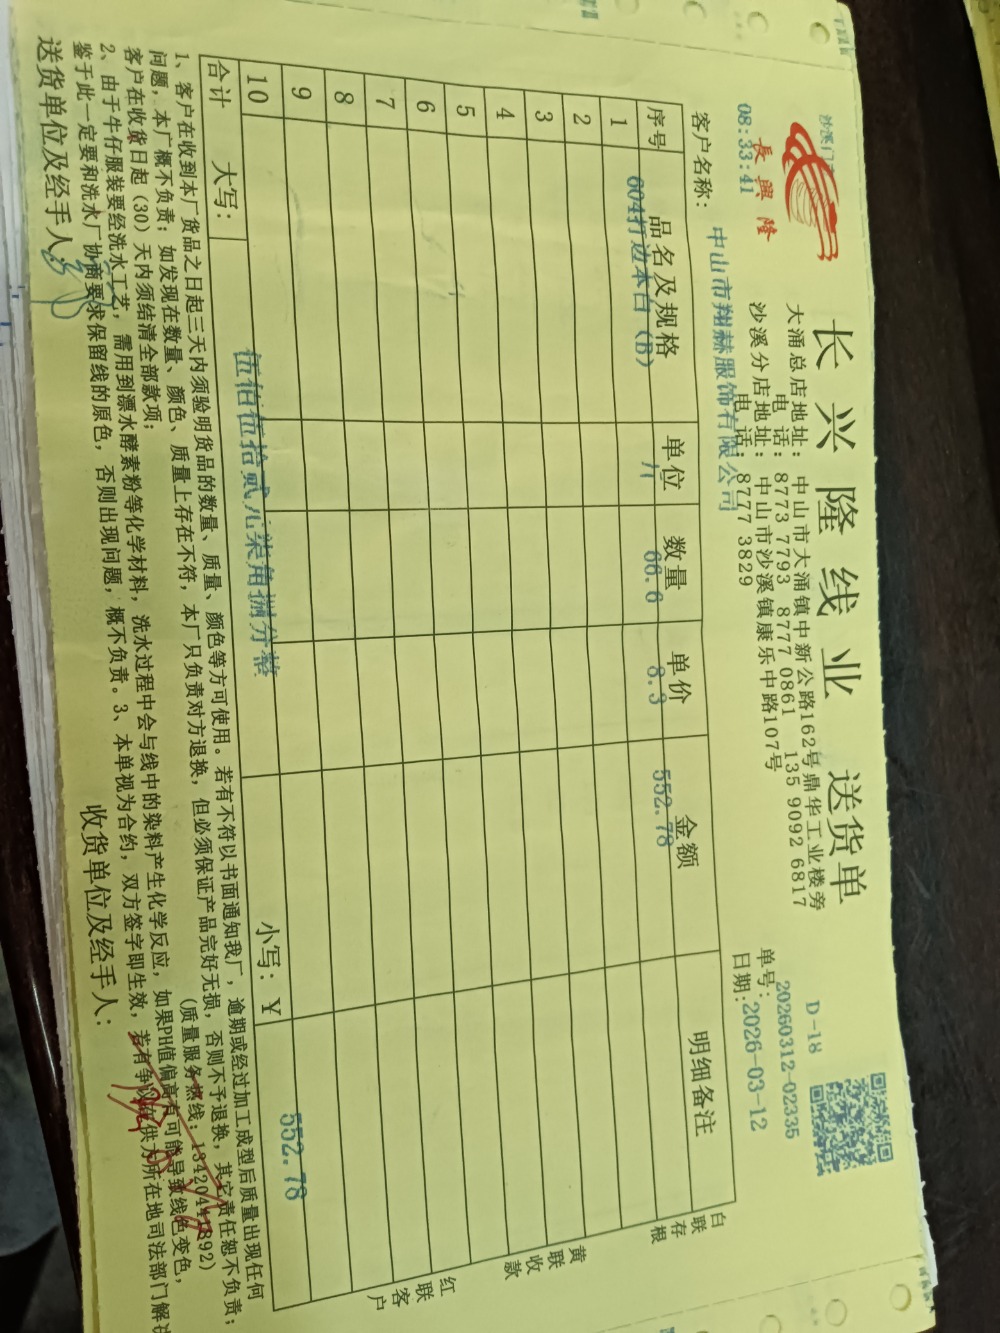 长兴隆线业 送货单
長興隆
08:33:41
大涌总店地址：中山市大涌镇中新公路162号鼎华工业楼旁
电 话：8773 7793 8777 0861 135 9092 6817
沙溪分店地址：中山市沙溪镇康乐中路107号
电 话：8777 3829
D-18
单号：20260312-02335
日期：2026-03-12
客户名称：中山市翔赫服饰有限公司
序号 品名及规格 单位 数量 单价 金额 明细备注
1 604打边本白（B） 个 66.6 8.3 552.78
2
3
4
5
6
7
8
9
10
合计 大写：伍佰伍拾贰元柒角捌分整 小写：¥ 552.78
白联存根
黄联收款
红联客户
1、客户在收到本厂货品之日起三天内须验明货品的数量、质量、颜色等方可使用。若有不符以书面通知我厂，逾期或经过加工成型后质量出现任何
问题，本厂概不负责；如发现在数量、颜色、质量上存在不符，本厂只负责对方退换，但必须保证产品完好无损，否则不予退换，其它责任恕不负责；
客户在收货日起（30）天内须结清全部款项；
（质量服务热线：
2、由于牛仔服装要经洗水工艺，需用到漂水酵素粉等化学材料，洗水过程中会与线中的染料产生化学反应，如果PH值偏高有可能导致线色变色，
鉴于此一定要和洗水厂协商要求保留线的原色，否则出现问题，概不负责。3、本单视为合约，双方签字即生效，若有争议供方所在地司法部门解决
送货单位及经手人：
收货单位及经手人：